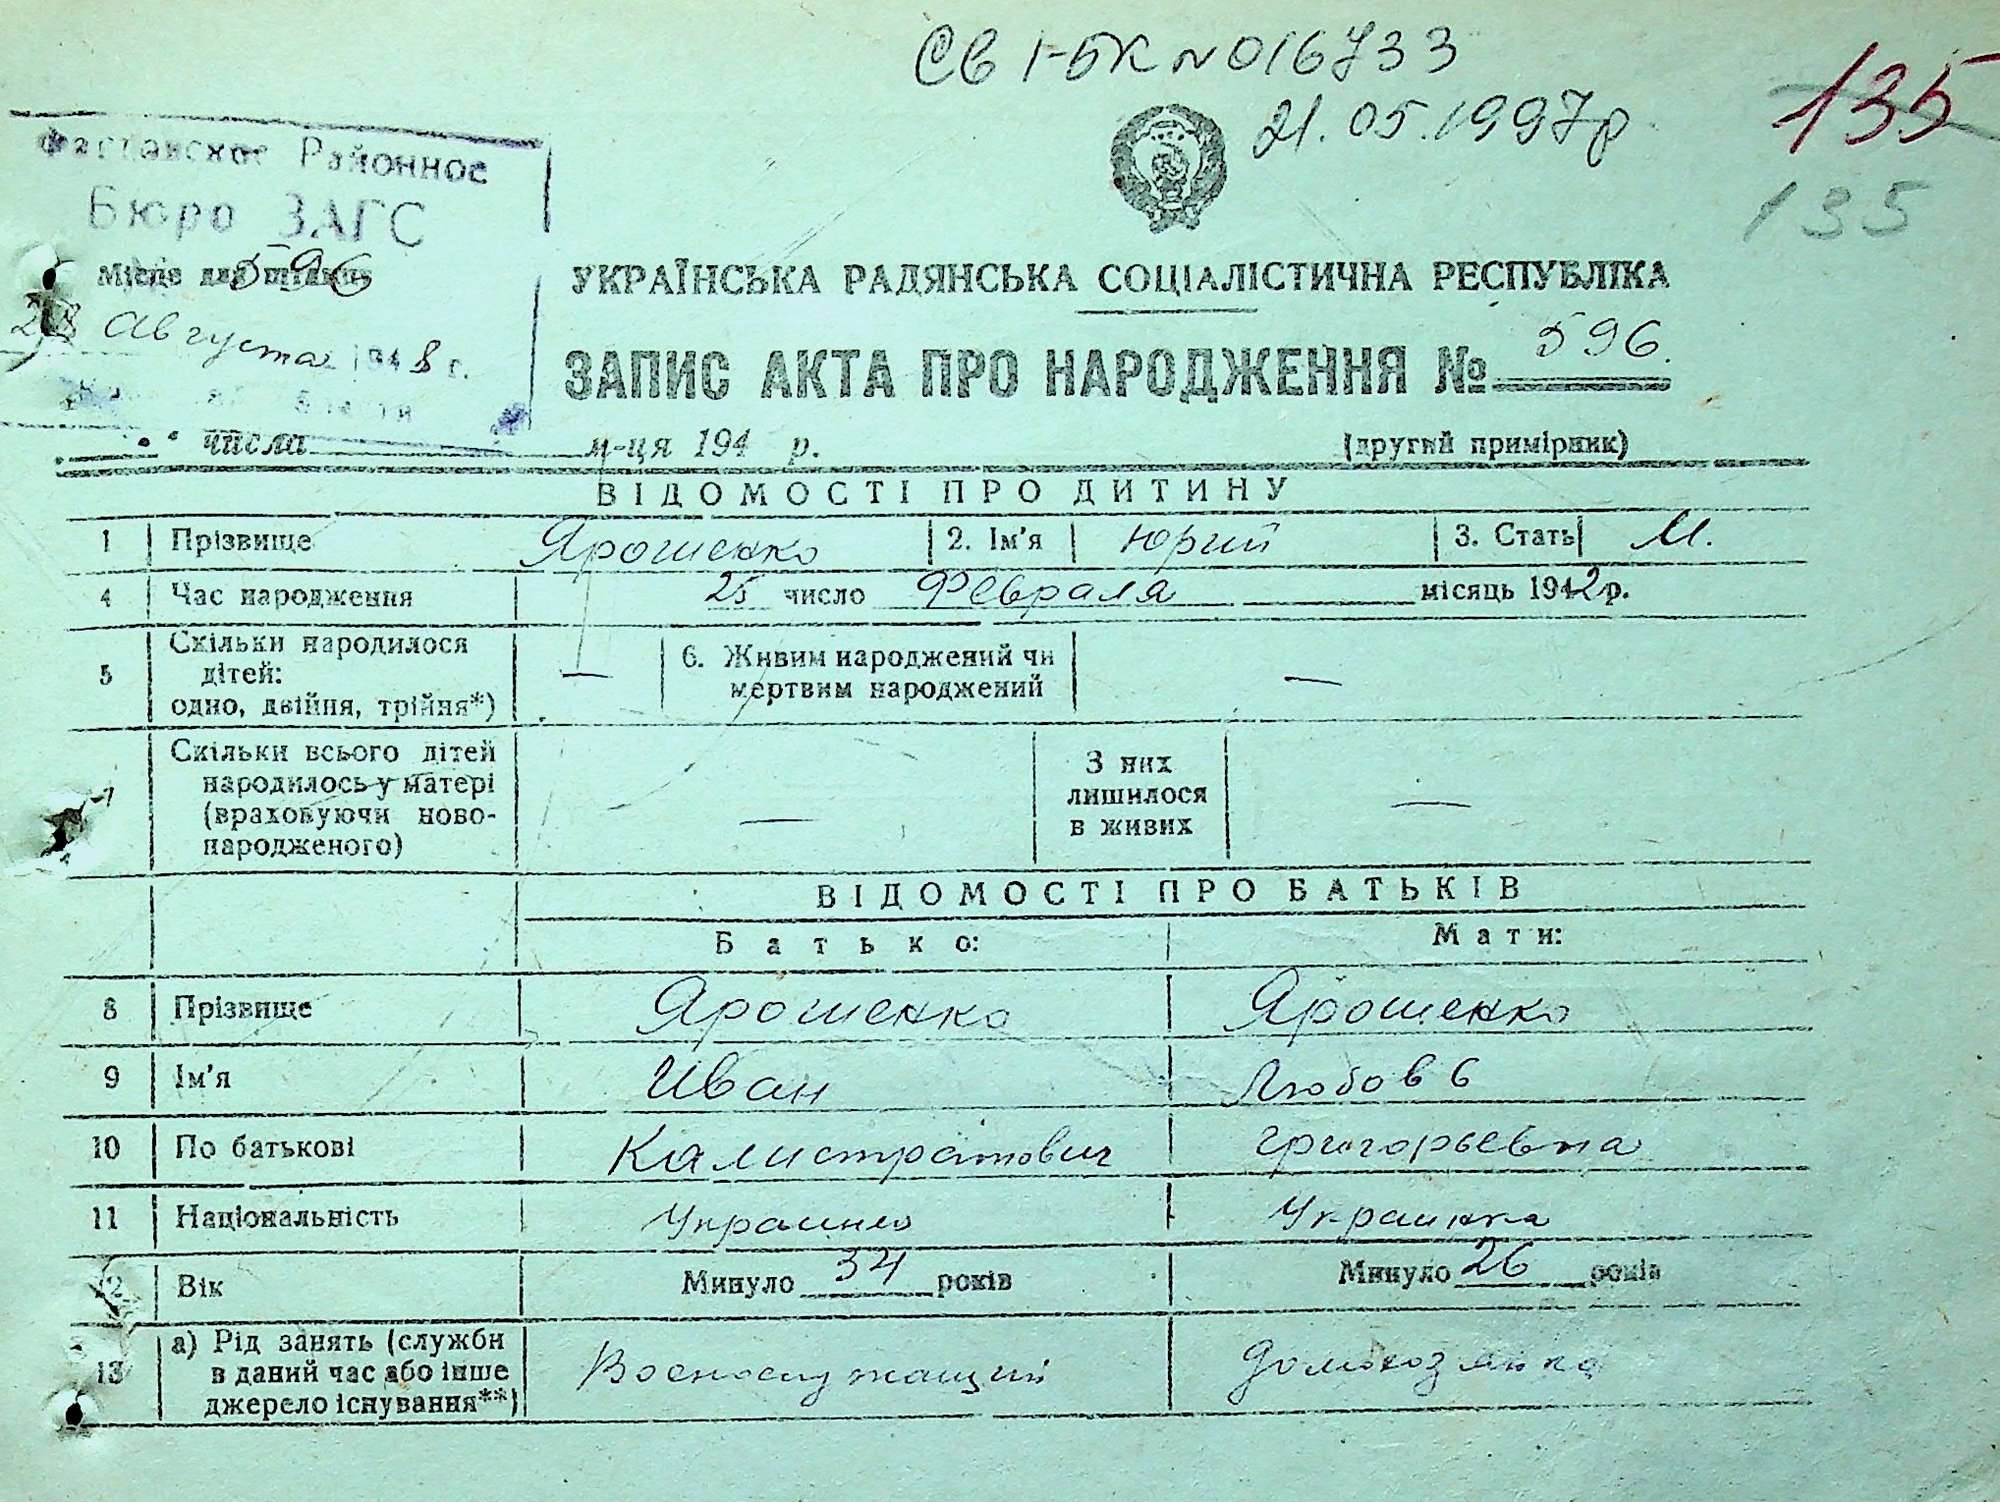 СВ I-БК № 016733
21.05.1997р
135
135
Фастовское Районное
Бюро ЗАГС
596
Місце для штампу
28 Августа 1948 г.
УКРАЇНСЬКА РАДЯНСЬКА СОЦІАЛІСТИЧНА РЕСПУБЛІКА
ЗАПИС АКТА ПРО НАРОДЖЕННЯ № 596.
числа м-ця 194 р. (другий примірник)
ВІДОМОСТІ ПРО ДИТИНУ
1 Прізвище Ярошенко 2. Ім'я Юрий 3. Стать М.
4 Час народження 25 число Февраля місяць 1942 р.
5 Скільки народилося дітей: одно, двійня, трійня*) — 6. Живим народжений чи мертвим народжений —
7 Скільки всього дітей народилось у матері (враховуючи ново-народженого) — З них лишилося в живих —
ВІДОМОСТІ ПРО БАТЬКІВ
Батько: Мати:
8 Прізвище Ярошенко Ярошенко
9 Ім'я Иван Любовь
10 По батькові Калистратович Григорьевна
11 Національність Украинец Украинка
12 Вік Минуло 34 років Минуло 26 років
13 а) Рід занять (служби в даний час або інше джерело існування**) Военослужащий Домохозяйка